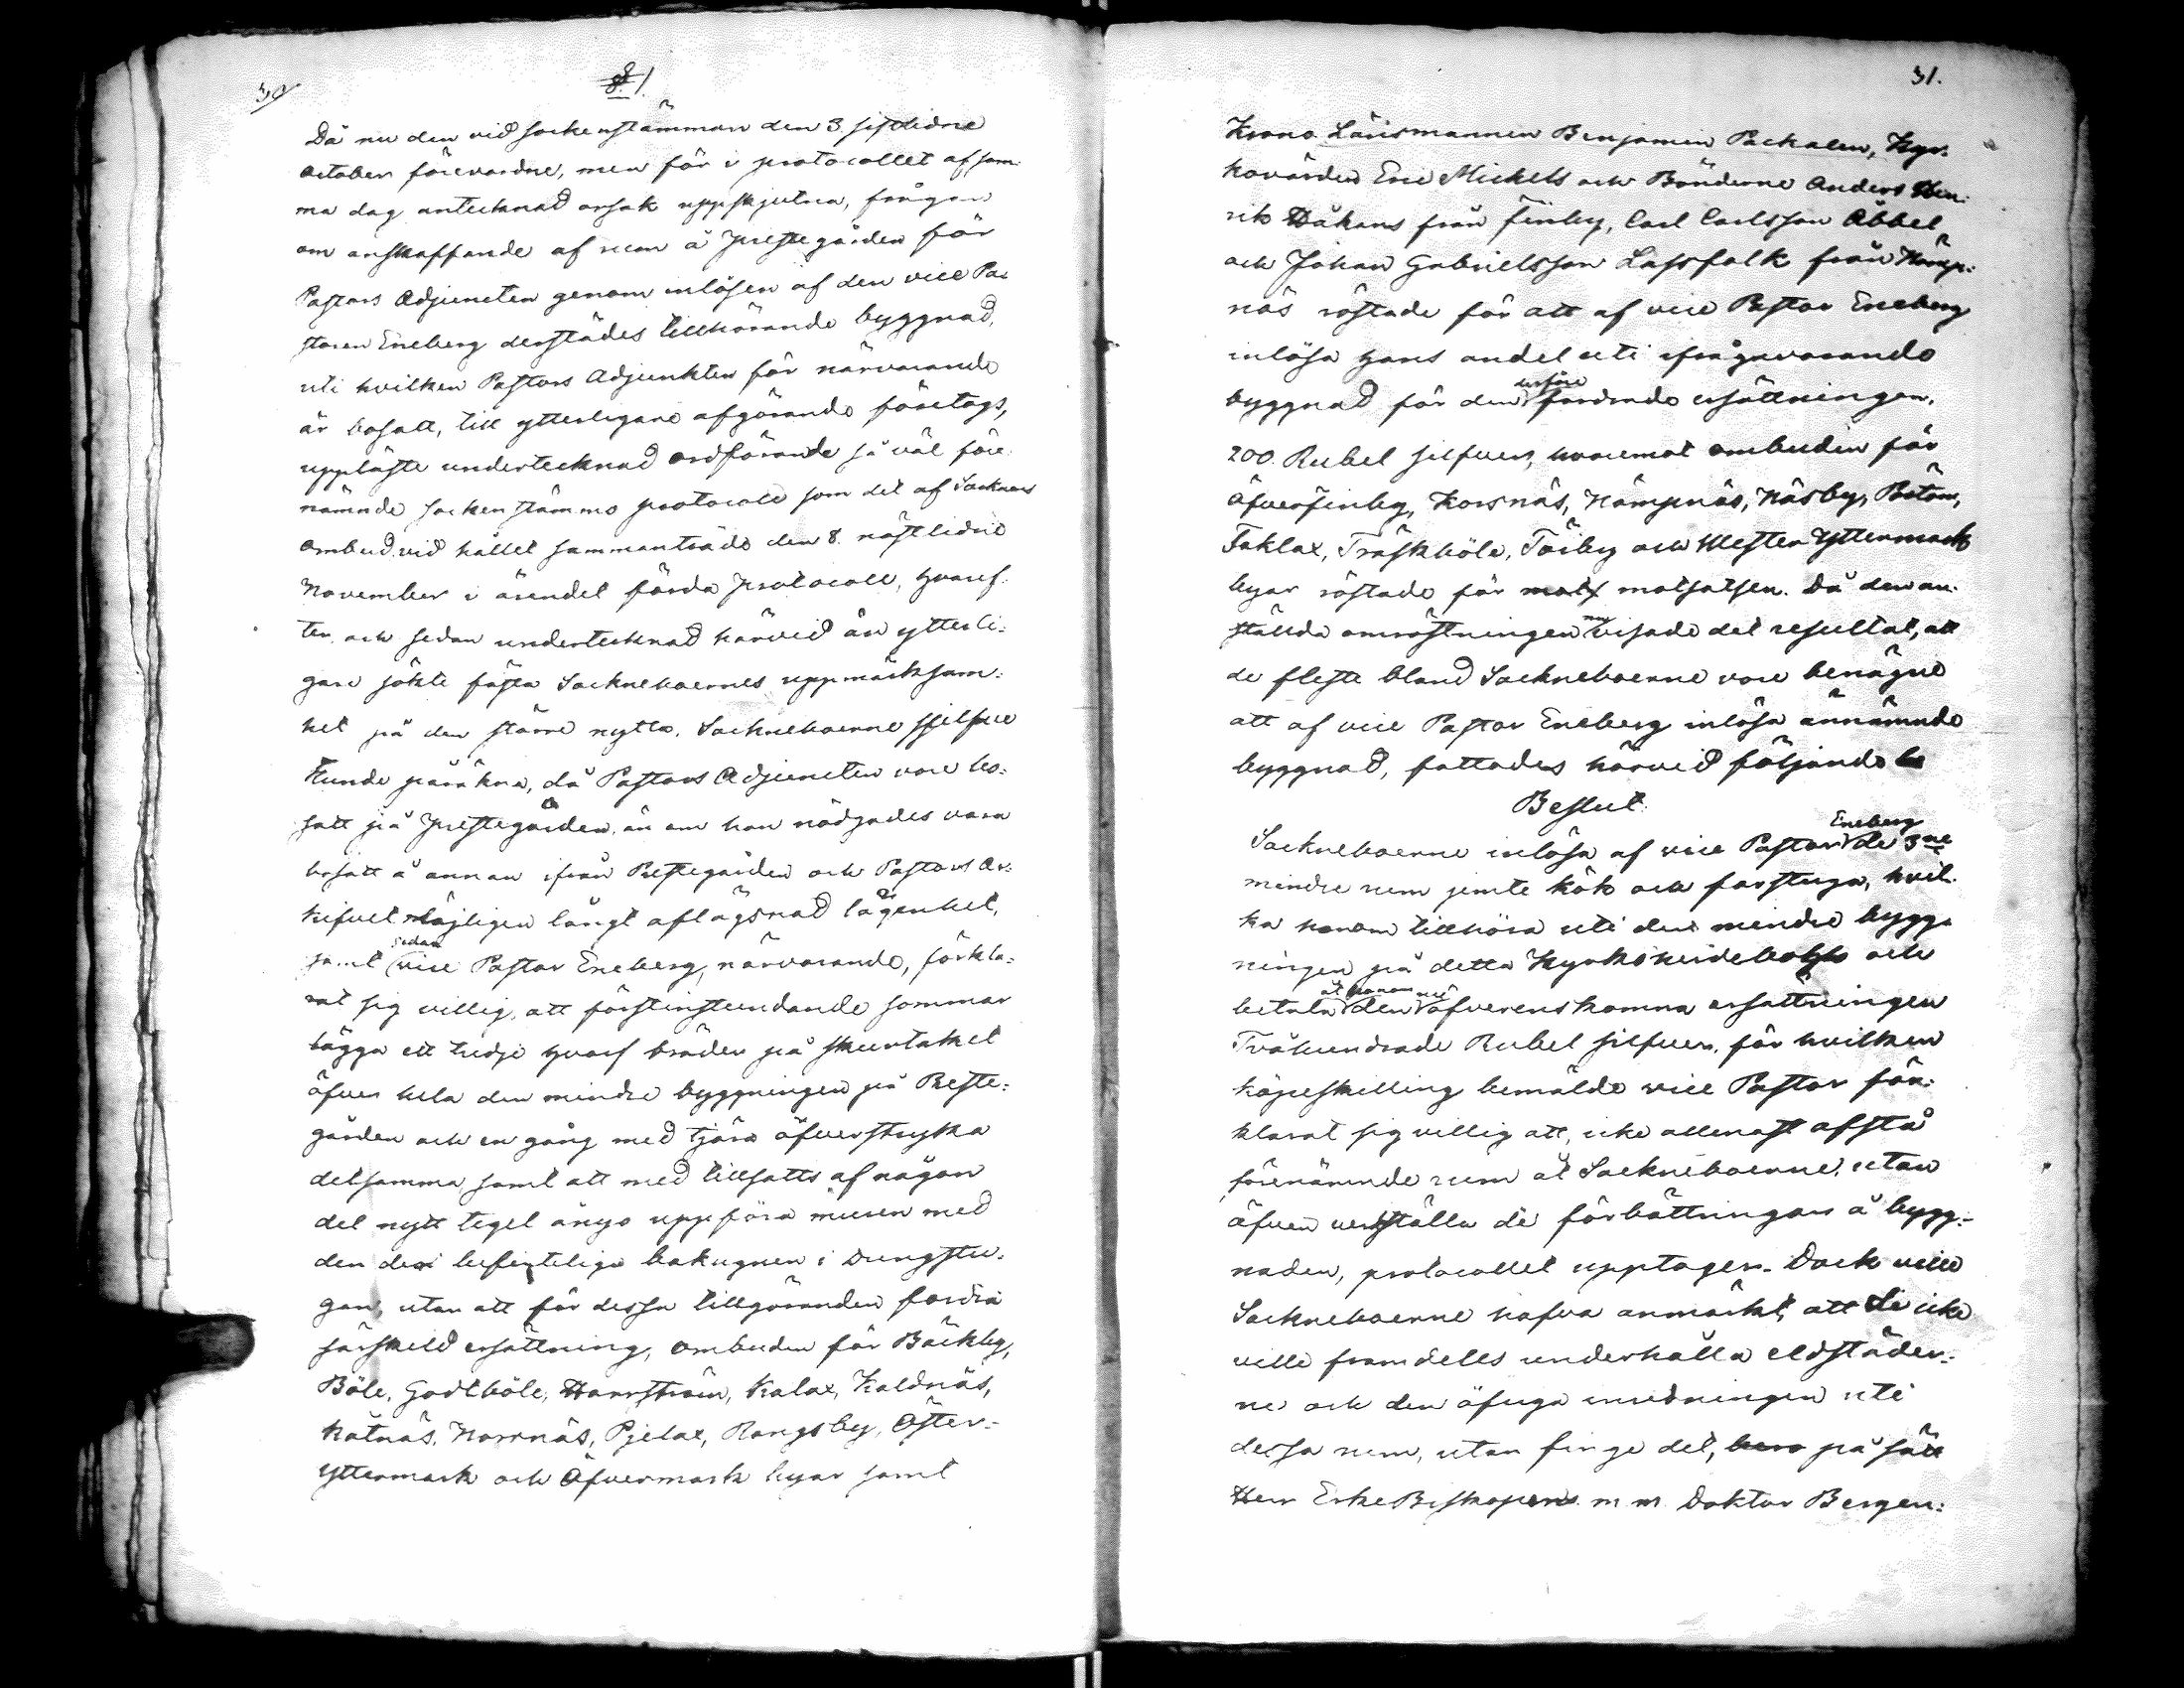 30
8. 1.
Då nu den vid sockenstämman den 3. sistlidne
October förevordne, men för i protocollet af sam-
ma dag antecknad orsak uppskjutna, frågan
om anskaffande af rum å Prestegården för
Pastors Adjuncten genom inlösen af den vice Pa-
storen Eneberg derstädes tillhörande byggnad,
uti hvilken Pastors Adjunkten för närvarande
är bosatt, till ytterligare afgörande företogs,
uppläste undertecknad ordförande så väl före-
nämnde sockenstämmo protocoll som det af Socknens
ombud vid hållet sammanträde den 8. nästlidne
November i ärendet förda protocoll, hvaref-
ter, och sedan undertecknad härvid än ytterli-
gare sökte fästa Sockneboernes uppmärksam-
het på den större nytta, Sockneboerne sjelfve
kunde påräkna, då Pastors Adjuncten vore bo-
satt på Prestegården, än om han nödgades vara
bosatt å annan ifrån Prestegården och Pastors Ar-
kifvet löjligen långt aflägsnad lägenhet,
samt sedan vice Pastor Eneberg, närvarande, förkla-
rat sig villig, att förstinstundande sommar
lägga ett tredje hvarf bräder på skurtaket
öfver hela den mindre byggningen på Preste-
gården och en gång med tjära öfverstryka
detsamma, samt att med tillsatts af någon
del nytt tegel ånyo uppföra muren med
den deri befinteliga bakugnen i Drengstu-
gan, utan att för dessa tillgöranden fordra
särskild ersättning, ombuden för Bäckby,
Böle, Gottböle, Harrström, Kalax, Kaldnäs,
Kåtnäs, Norrnäs, Pjelax, Rangsby, Öster-
Yttermark och Öfvermark byar samt
31.
Krono Länsmannen Benjamin Packalen, Kyr-
kovärden Eric Mickels och Bönderne Anders Hen-
rik Håkans från Finby, Carl Carlsson Åbbel
och Johan Gabrielsson Lassfolk från Nämp-
näs röstade för att af vice Pastor Eneberg
inlösa hans andel uti ifrågavarande
byggnad för den derföre fordrade ersättningen,
200. Rubel silfver, hvaremot ombuden för
Öfverfinby, Korsnäs, Nämpnäs, Näsby, Botom,
Taklax, Träskböle, Törby och Wester Yttermark
byar röstade för motsatsen. Då den an-
stälda omröstningen nu visade det resultat, att
de fleste bland Socknboerne vore benägne
att af vice Pastor Eneberg inlösa ännämnde
byggnad, fattades härvid följande
Beslut:
Socknboerne inlösa af vice Pastor Eneberg de 3ne
mindre rum jemte kök och farstuga, hvil-
ka honom tillhöra uti den mindre bygg-
ningen på detta Kyrkoherdeboställe och
betala åt honom den nu öfverenskomna ersättningen
Tvåhundrade Rubel silfver, för hvilken
köpeskilling bemälde vice Pastor för-
klarat sig villig att, icke allenast afstå
förenämnde rum åt Socknboerne, utan
äfven verkställa de förbättringar å bygg-
naden, protocollet upptager. Dock ville
Socknboerne hafva anmärkt, att de icke
ville framdeles underhålla eldstäder-
ne och den öfriga inredningen uti
dessa rum, utan finge det, på sätt
Herr ErkeBiskopen m. m. Doktor Bergen-